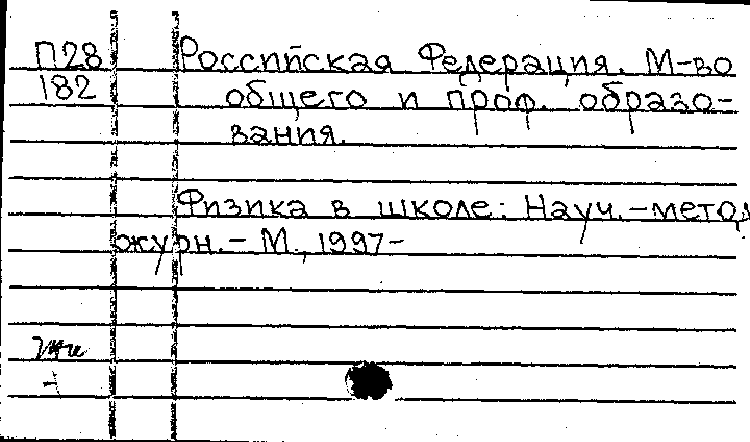 П28 Российская Федерация. М-во
182 общего и проф. образо-
вания.
Физика в школе: Науч.-метод.
журн. - М., 1997-